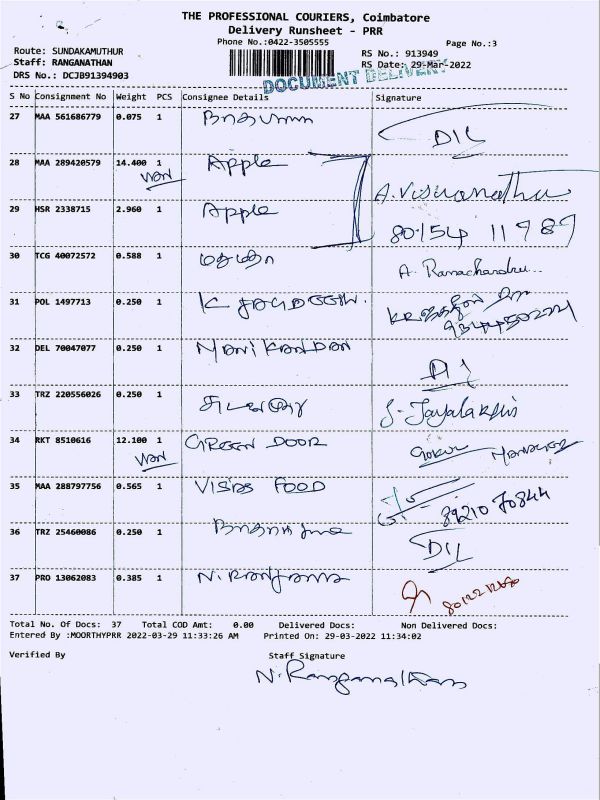 THE PROFESSIONAL COURIERS, Coimbatore
Delivery Runsheet - PRR
Phone No.:0422-3505555
Page No.:3
Route: SUNDAKAMUTHUR
RS No.: 913949
Staff: RANGANATHAN
RS Date: 29-Mar-2022
DRS No.: DCJB91394903
DOCUMENT DELIVERY
S No Consignment No Weight PCS Consignee Details Signature
27 MAA 561686779 0.075 1 DIL
28 MAA 289420579 14.400 1 Apple
WAN
A. Viswanathan
29 HSR 2338715 2.960 1 Apple
80154 11989
30 TCG 40072572 0.588 1 A. Ramachandru..
31 POL 1497713 0.250 1 K
32 DEL 70047077 0.250 1 MANIKANDAN
33 TRZ 220556026 0.250 1 S. Jayalakshmi
34 RKT 8510616 12.100 1 GREEN DOOR Gokul Manager
WAN
35 MAA 288797756 0.565 1 FOOD 89210 70844
36 TRZ 25460086 0.250 1 DIL
37 PRO 13062083 0.385 1 N. Ranjana
Total No. Of Docs: 37 Total COD Amt: 0.00 Delivered Docs: Non Delivered Docs:
Entered By :MOORTHYPRR 2022-03-29 11:33:26 AM Printed On: 29-03-2022 11:34:02
Verified By Staff Signature
N. Ranganathan